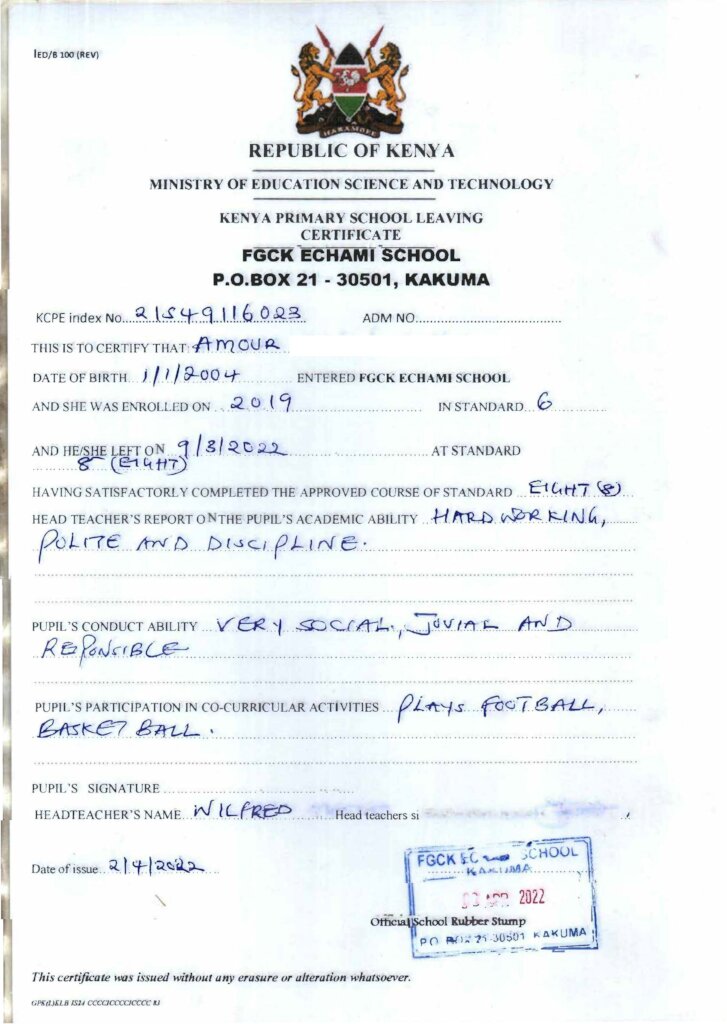 IED/B 100 (REV)
HARAMBEE
REPUBLIC OF KENYA
MINISTRY OF EDUCATION SCIENCE AND TECHNOLOGY
KENYA PRIMARY SCHOOL LEAVING
CERTIFICATE
FGCK ECHAMI SCHOOL
P.O.BOX 21 - 30501, KAKUMA
KCPE index No. 21549116023 ADM NO.
THIS IS TO CERTIFY THAT: AMOUR
DATE OF BIRTH 1/1/2004 ENTERED FGCK ECHAMI SCHOOL
AND SHE WAS ENROLLED ON 2019 IN STANDARD 6
AND HE/SHE LEFT ON 9/3/2022 AT STANDARD
8 (EIGHT)
HAVING SATISFACTORLY COMPLETED THE APPROVED COURSE OF STANDARD EIGHT (8)
HEAD TEACHER'S REPORT ON THE PUPIL'S ACADEMIC ABILITY HARD WORKING,
POLITE AND DISCIPLINE.
PUPIL'S CONDUCT ABILITY VERY SOCIAL, JOVIAL AND
REPONSIBLE
PUPIL'S PARTICIPATION IN CO-CURRICULAR ACTIVITIES PLAYS FOOTBALL,
BASKET BALL.
PUPIL'S SIGNATURE
HEADTEACHER'S NAME WILFRED Head teachers si
Date of issue 2/4/2022
FGCK SCHOOL
KAKUMA
APR 2022
Official School Rubber Stump
P.O. BOX 21-30501 KAKUMA
This certificate was issued without any erasure or alteration whatsoever.